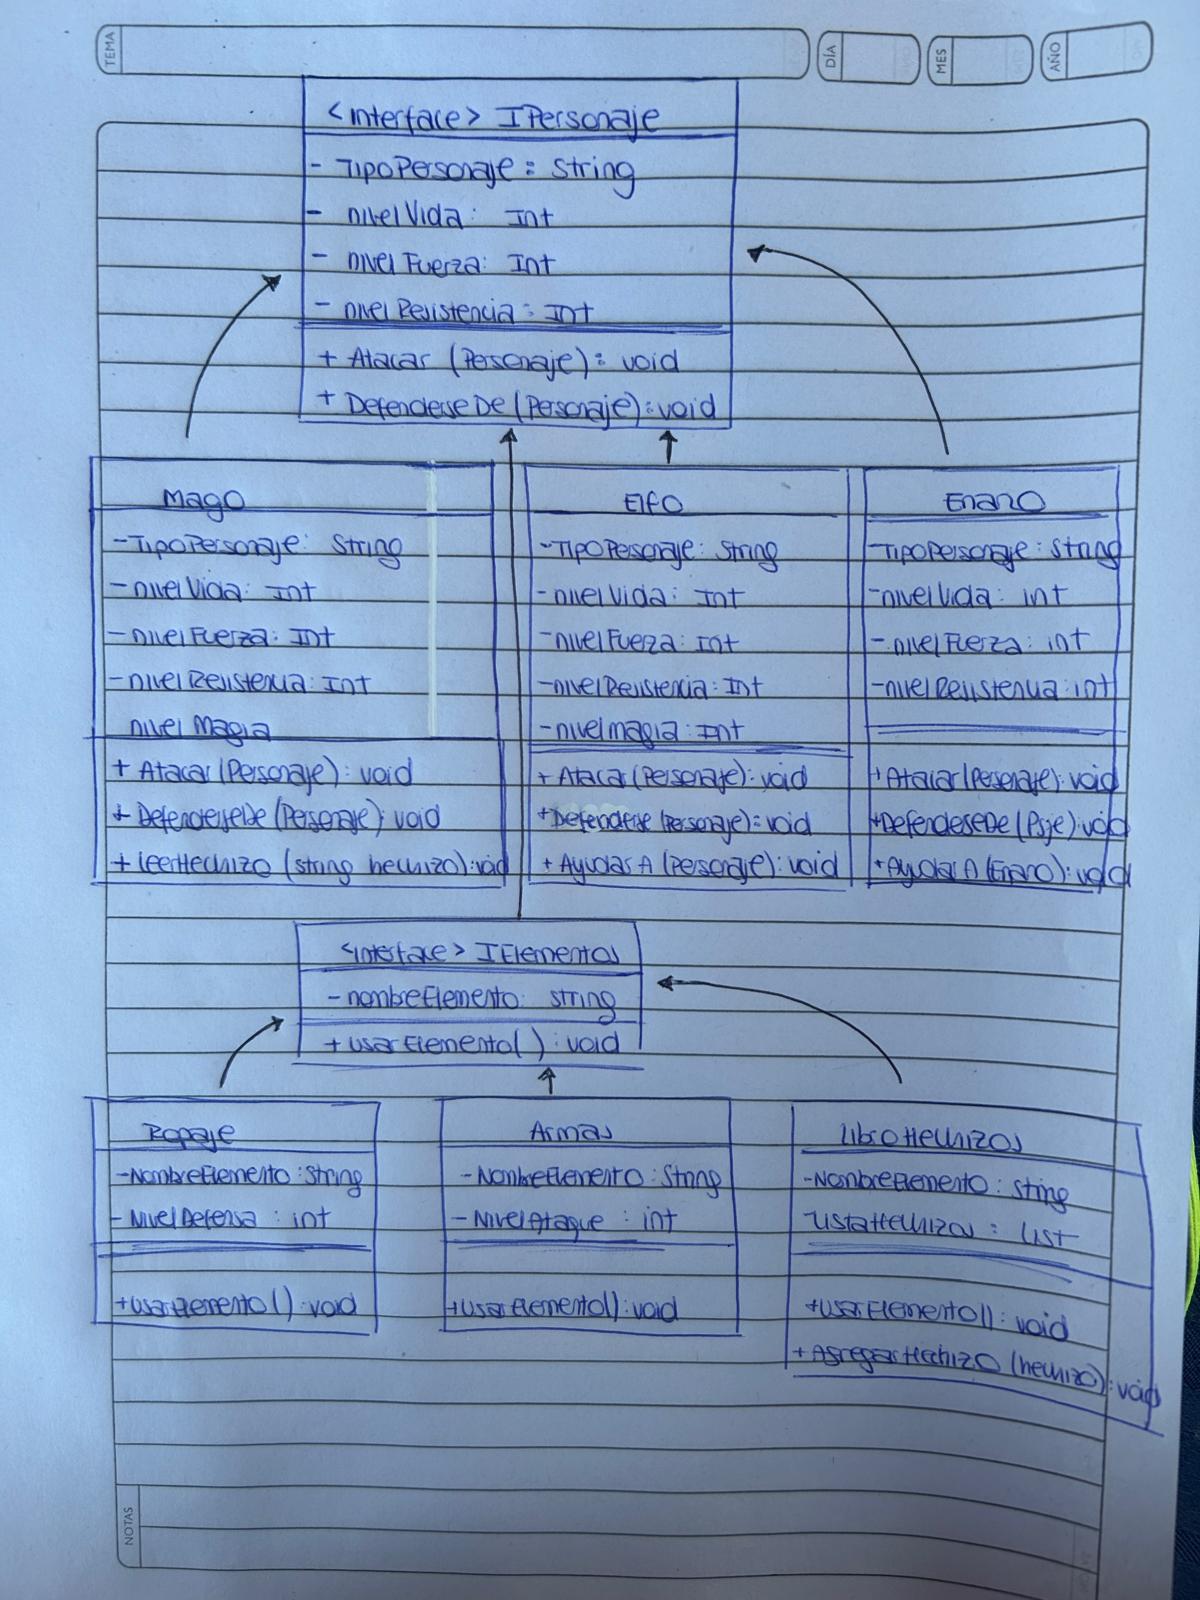 TEMA
DÍA
MES
AÑO
<Interface> IPersonaje
- TipoPersonaje: String
- nivelVida: Int
- nivelFuerza: Int
- nivelResistencia: Int
+ Atacar (Personaje): void
+ DefenderseDe (Personaje): void
Mago
- TipoPersonaje: String
- nivelVida: Int
- nivelFuerza: Int
- nivelResistencia: Int
nivelMagia
+ Atacar (Personaje): void
+ DefenderseDe (Personaje): void
+ LeerHechizo (string hechizo): void
Elfo
- TipoPersonaje: String
- nivelVida: Int
- nivelFuerza: Int
- nivelResistencia: Int
- nivelmagia: Int
+ Atacar (Personaje): void
+ Defenderse (Personaje): void
+ AyudarA (Personaje): void
Enano
- TipoPersonaje: String
- nivelVida: int
- nivelFuerza: int
- nivelResistencia: int
+ Atacar (Personaje): void
+ DefenderseDe (Psje): void
+ AyudarA (Enano): void
<interface> IElementos
- nombreElemento: string
+ usarElemento(): void
Ropaje
- NombreElemento: String
- NivelDefensa: int
+ UsarElemento(): void
Armas
- NombreElemento: String
- NivelAtaque: int
+ UsarElemento(): void
LibroHechizos
- NombreElemento: String
- ListaHechizos: List
+ UsarElemento(): void
+ AgregarHechizo (hechizo): void
NOTAS